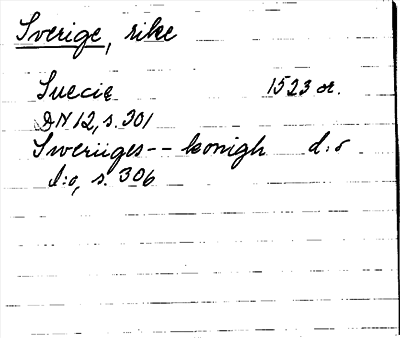 Sverige, rike
Suecie 1523 or.
DN 12, s. 301
Sweriiges -- konigh d:o
d:o, s. 306